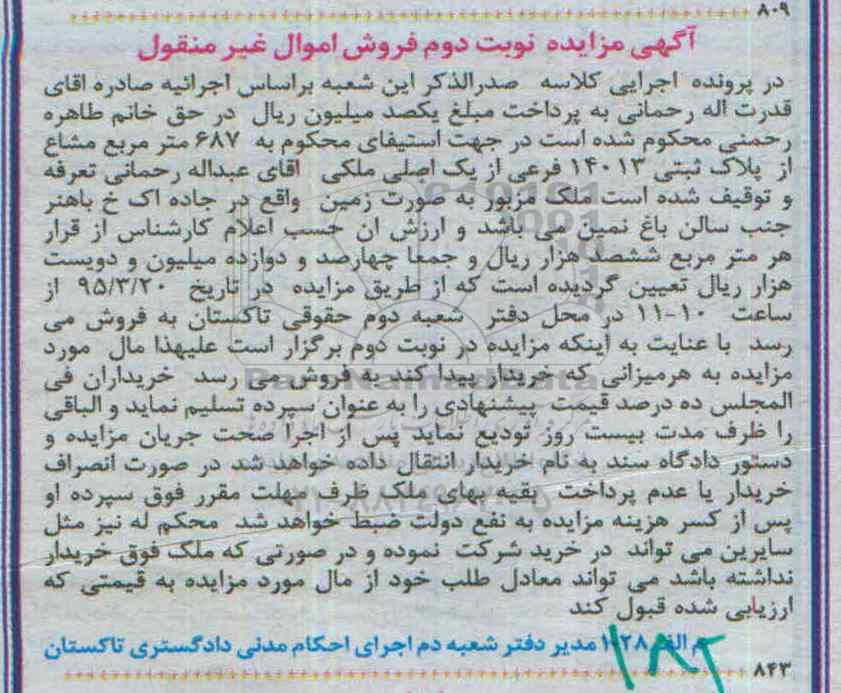 ۸۰۹
آگهی مزایده نوبت دوم فروش اموال غیر منقول
در پرونده اجرایی کلاسه صدرالذکر این شعبه براساس اجرائیه صادره اقای
قدرت اله رحمانی به پرداخت مبلغ یکصد میلیون ریال در حق خانم طاهره
رحمنی محکوم شده است در جهت استیفای محکوم به ۶۸۷ متر مربع مشاع
از پلاک ثبتی ۱۴۰۱۳ فرعی از یک اصلی ملکی اقای عبداله رحمانی تعرفه
و توقیف شده است ملک مزبور به صورت زمین واقع در جاده اک خ باهنر
جنب سالن باغ نمین می باشد و ارزش ان حسب اعلام کارشناس از قرار
هر متر مربع ششصد هزار ریال و جمعا چهارصد و دوازده میلیون و دویست
هزار ریال تعیین گردیده است که از طریق مزایده در تاریخ ۹۵/۳/۲۰ از
ساعت ۱۰-۱۱ در محل دفتر شعبه دوم حقوقی تاکستان به فروش می
رسد با عنایت به اینکه مزایده در نوبت دوم برگزار است علیهذا مال مورد
مزایده به هرمیزانی که خریدار پیدا کند به فروش می رسد خریداران فی
المجلس ده درصد قیمت پیشنهادی را به عنوان سپرده تسلیم نماید و الباقی
را ظرف مدت بیست روز تودیع نماید پس از اجرا صحت جریان مزایده و
دستور دادگاه سند به نام خریدار انتقال داده خواهد شد در صورت انصراف
خریدار یا عدم پرداخت بقیه بهای ملک ظرف مهلت مقرر فوق سپرده او
پس از کسر هزینه مزایده به نفع دولت ضبط خواهد شد محکم له نیز مثل
سایرین می تواند در خرید شرکت نموده و در صورتی که ملک فوق خریدار
نداشته باشد می تواند معادل طلب خود از مال مورد مزایده به قیمتی که
ارزیابی شده قبول کند
م الف مدیر دفتر شعبه دم اجرای احکام مدنی دادگستری تاکستان
۸۴۳
۱۸۲
ParsNamadData